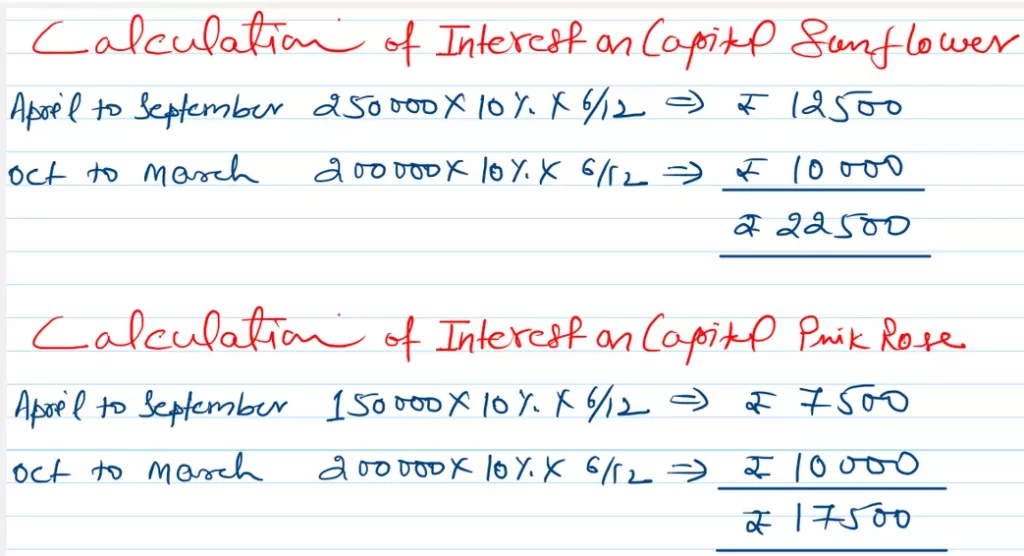 Calculation of Interest on Capital Sunflower
April to September 250000 X 10%. X 6/12 ⇒ ₹ 12500
Oct to March 200000 X 10%. X 6/12 ⇒ ₹ 10000
₹ 22500
Calculation of Interest on Capital Pnik Rose
April to September 150000 X 10%. X 6/12 ⇒ ₹ 7500
Oct to March 200000 X 10%. X 6/12 ⇒ ₹ 10000
₹ 17500